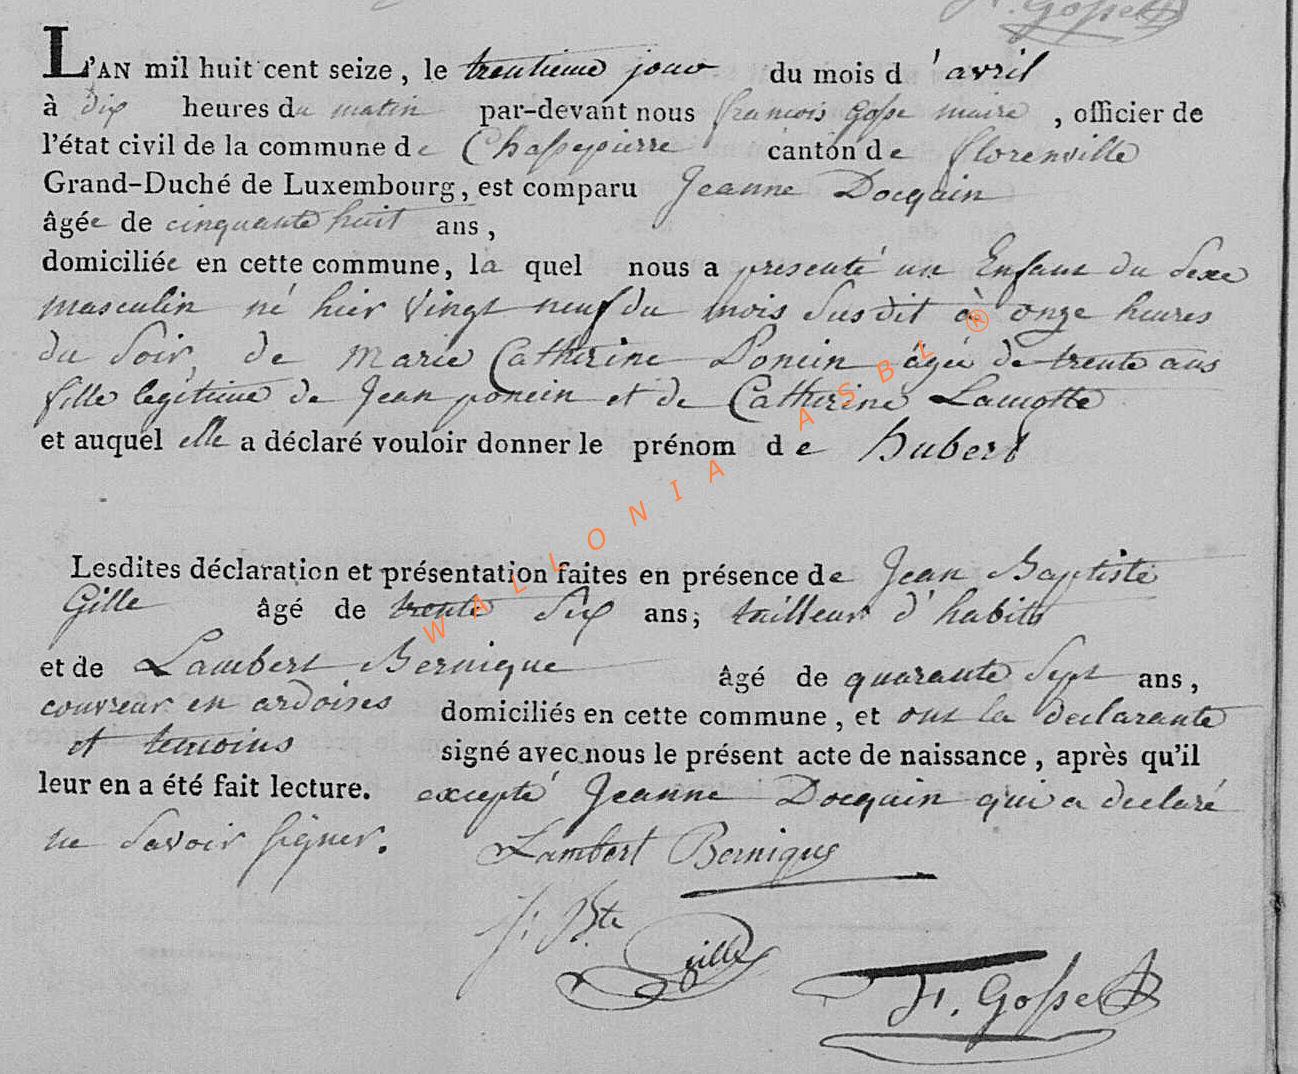 F. Gosse
L'AN mil huit cent seize, le trentieme jour du mois d'avril
à dix heures du matin par-devant nous francois Gosse maire, officier de
l'état civil de la commune de Chassepierre canton de florenville
Grand-Duché de Luxembourg, est comparu Jeanne Docquin
âgée de cinquante huit ans,
domiciliée en cette commune, la quel nous a presenté un Enfant du Sexe
masculin né hier vingt neuf du mois Susdit à onze heures
du Soir, de Marie Catherine Poncin agée de trente ans
fille legitime de Jean poncin et de Catherine Lamotte
et auquel elle a déclaré vouloir donner le prénom de hubert
Lesdites déclaration et présentation faites en présence de Jean Baptiste
Gille âgé de trente Six ans, tailleur d'habits
et de Lambert Bernique âgé de quarante Sept ans,
couvreur en ardoises domiciliés en cette commune, et ont la declarante
et temoins signé avec nous le présent acte de naissance, après qu'il
leur en a été fait lecture. excepté Jeanne Docquin qui a declaré
ne Savoir Signer. Lambert Bernique
J. Bte
Gille
F. Gosse
WALLONIA ASBL ®